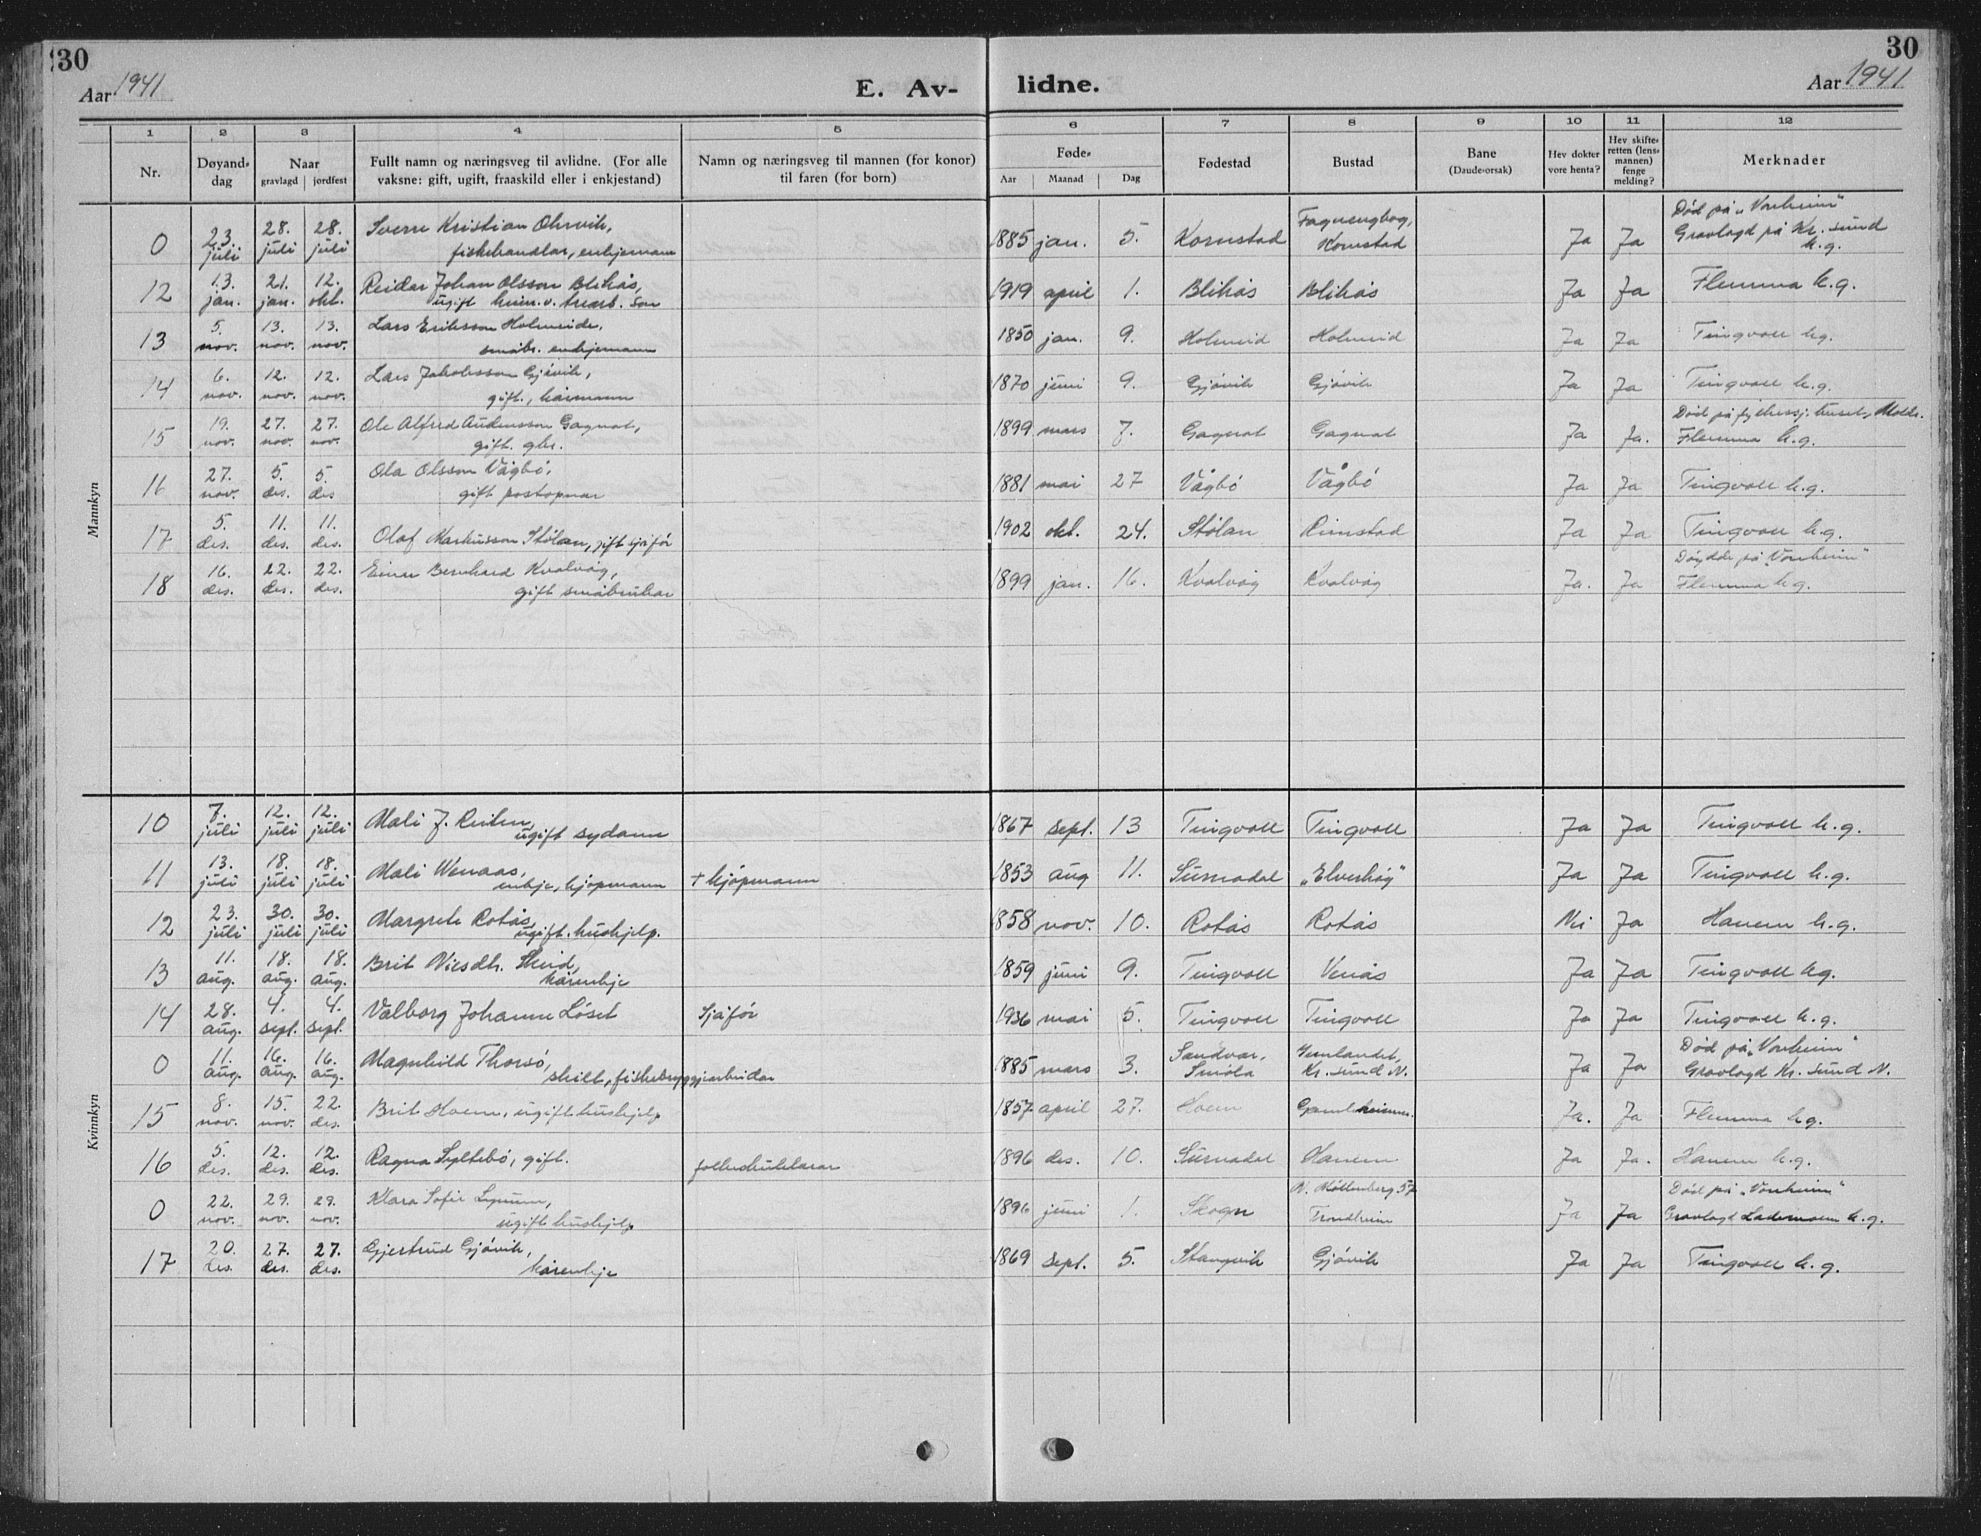 30 30
Aar 1941 E. Av- lidne. Aar 1941
1 2 3 4 5 6 7 8 9 10 11 12
Nr. Døyand-dag Naar gravlagd jordfest Fullt namn og næringsveg til avlidne. (For alle vaksne: gift, ugift, fraaskild eller i enkjestand) Namn og næringsveg til mannen (for konor) til faren (for born) Føde- Aar Maanad Dag Fødestad Bustad Bane (Daude-orsak) Hev dokter vore henta? Hev skifte-retten (lens-mannen) fenge melding? Merknader
Mannkyn
0 23. juli 28. juli 28. juli Sverre Kristian Ohrvik, fiskehandlar, enkjemann 1885 jan. 5. Kornstad Kornstad Ja Ja Død på "Vonheim" Gravlagd på Kr. sund k.g.
12 13. jan. 21. jan. 12. okt. Reidar Johan Olsson Blikås, ugift heim.v. son 1919 april 1. Blikås Blikås Ja Ja Flemma k.g.
13 5. nov. 13. nov. 13. nov. Lars Eriksson Holmeide, småbr. enkjemann 1850 jan. 9. Holmeid Holmeid Ja Ja Tingvoll k.g.
14 6. nov. 12. nov. 12. nov. Lars Jakobsson Gjøvik, gift, kårmann 1870 juni 9. Gjøvik Gjøvik Ja Ja Tingvoll k.g.
15 19. nov. 27. nov. 27. nov. Ole Alfred Audensson Gagnat, gift. gbr. 1899 mars 7. Gagnat Gagnat Ja Ja. Død på fylkessj. huset, Molde. Flemma k.g.
16 27. nov. 5. des. 5. des Ola Olsson Vågbø, gift postopnar 1881 mai 27 Vågbø Vågbø Ja Ja Tingvoll k.g.
17 5. des. 11. des. 11. des. Olaf Markusson Stølan, gift sjåfør 1902 okt. 24. Stølan Rimstad Ja Ja Tingvoll k.g.
18 16. des. 22. des. 22. des. Einar Bernhard Kvalvåg, gift småbrukar 1899 jan. 16. Kvalvåg Kvalvåg Ja. Ja Døydde på "Vonheim" Flemma k.g.
Kvinnkyn
10 7. juli 12. juli 12. juli Mali J. Reiten, ugift sydame 1867 sept. 13 Tingvoll Tingvoll Ja Ja Tingvoll k.g.
11 13. juli 18. juli 18. juli Mali Wenaas, enkje, kjøpmann + kjøpmann 1853 aug 11. Surnadal "Elverhøy" Ja Ja Tingvoll k.g.
12 23. juli 30. juli 30. juli Margrete Rotås, ugift. hushjelp. 1858 nov. 10. Rotås Rotås Nei Ja Hanem k.g.
13 11. aug. 18. aug. 18. aug. Brit Nilsdtr. Skeid, kårenkje 1859 juni 9. Tingvoll Venås Ja Ja Tingvoll k.g.
14 28. aug. 4. sept. 4. sept. Valborg Johanne Løset Sjåfør 1936 mai 5. Tingvoll Tingvoll Ja Ja Tingvoll k.g.
0 11. aug. 16. aug. 16. aug. Magnhild Thorsø, skilt, fiskebryggjarbeidar 1885 mars 3. Sandvær, Smøla Gomlandet, Kr. sund N. Ja Ja Død på "Vonheim" Gravlagd Kr. sund N.
15 8. nov. 15. nov. 22. des. Brit Hoem, ugift hushjelp 1857 april 27. Hoem Gamleheimen. Ja. Ja Flemma k.g.
16 5. des. 12. des. 12. des. Ragna Syltebø, gift. folkeskulelærar 1896 des. 10. Surnadal Hanem Ja Ja. Hanem k.g.
0 22. nov. 29. nov. 29. nov. Klara Sofie Lynum, ugift hushjelp 1896 juni 1. Skogn N. Møllenberg 57 Trondheim Ja Ja Død på "Vonheim" Gravlagd Lademoen k.g.
17 20. des. 27. des. 27. des. Gjertrud Gjøvik, kårenkje 1869 sept. 5. Stangvik Gjøvik Ja Ja Tingvoll k.g.